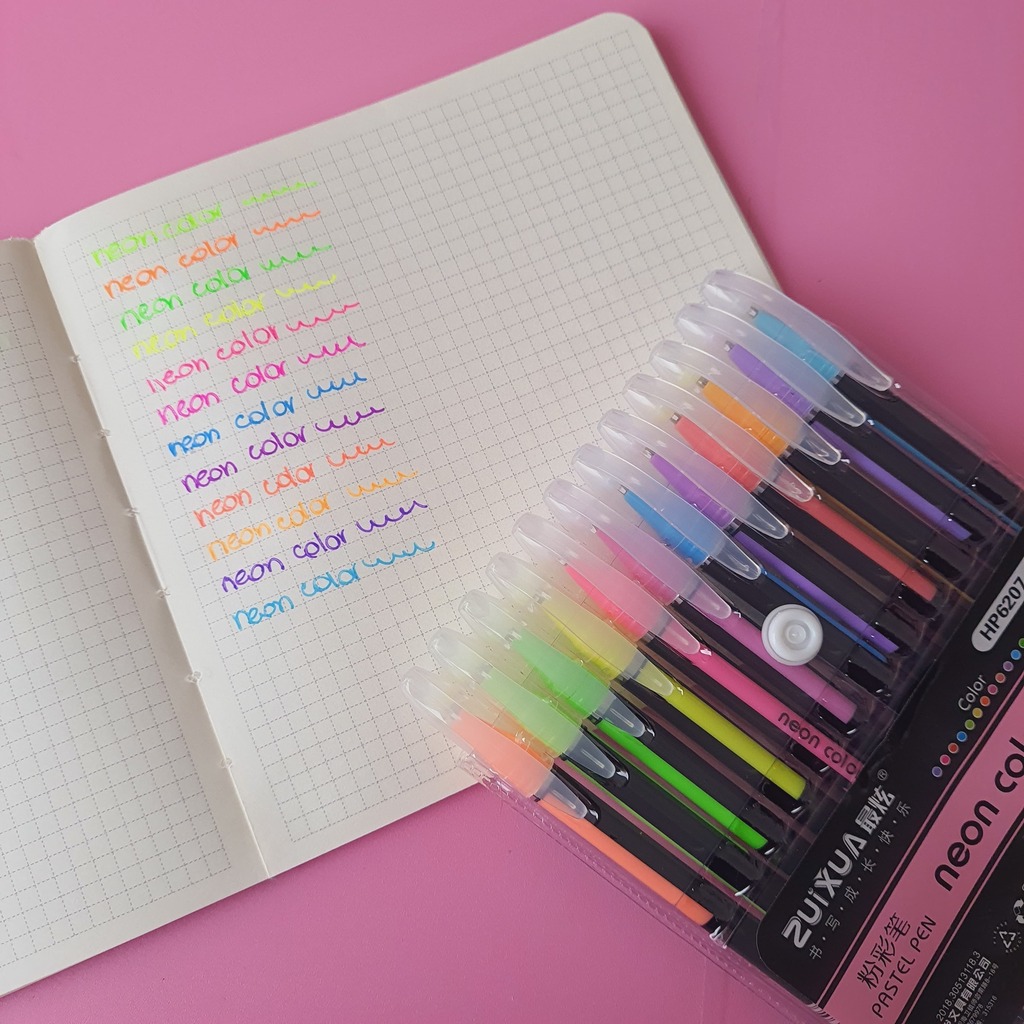 neon color
neon color
neon color
neon color
neon color
neon color
neon color
neon color
neon color
neon color
neon color
neon color
HP6207
Color
neon colo
ZUiXUA最炫®
书·写·成·长·快·乐
neon col
粉彩笔
PASTEL PEN
2018.30513118.3
文具有限公司